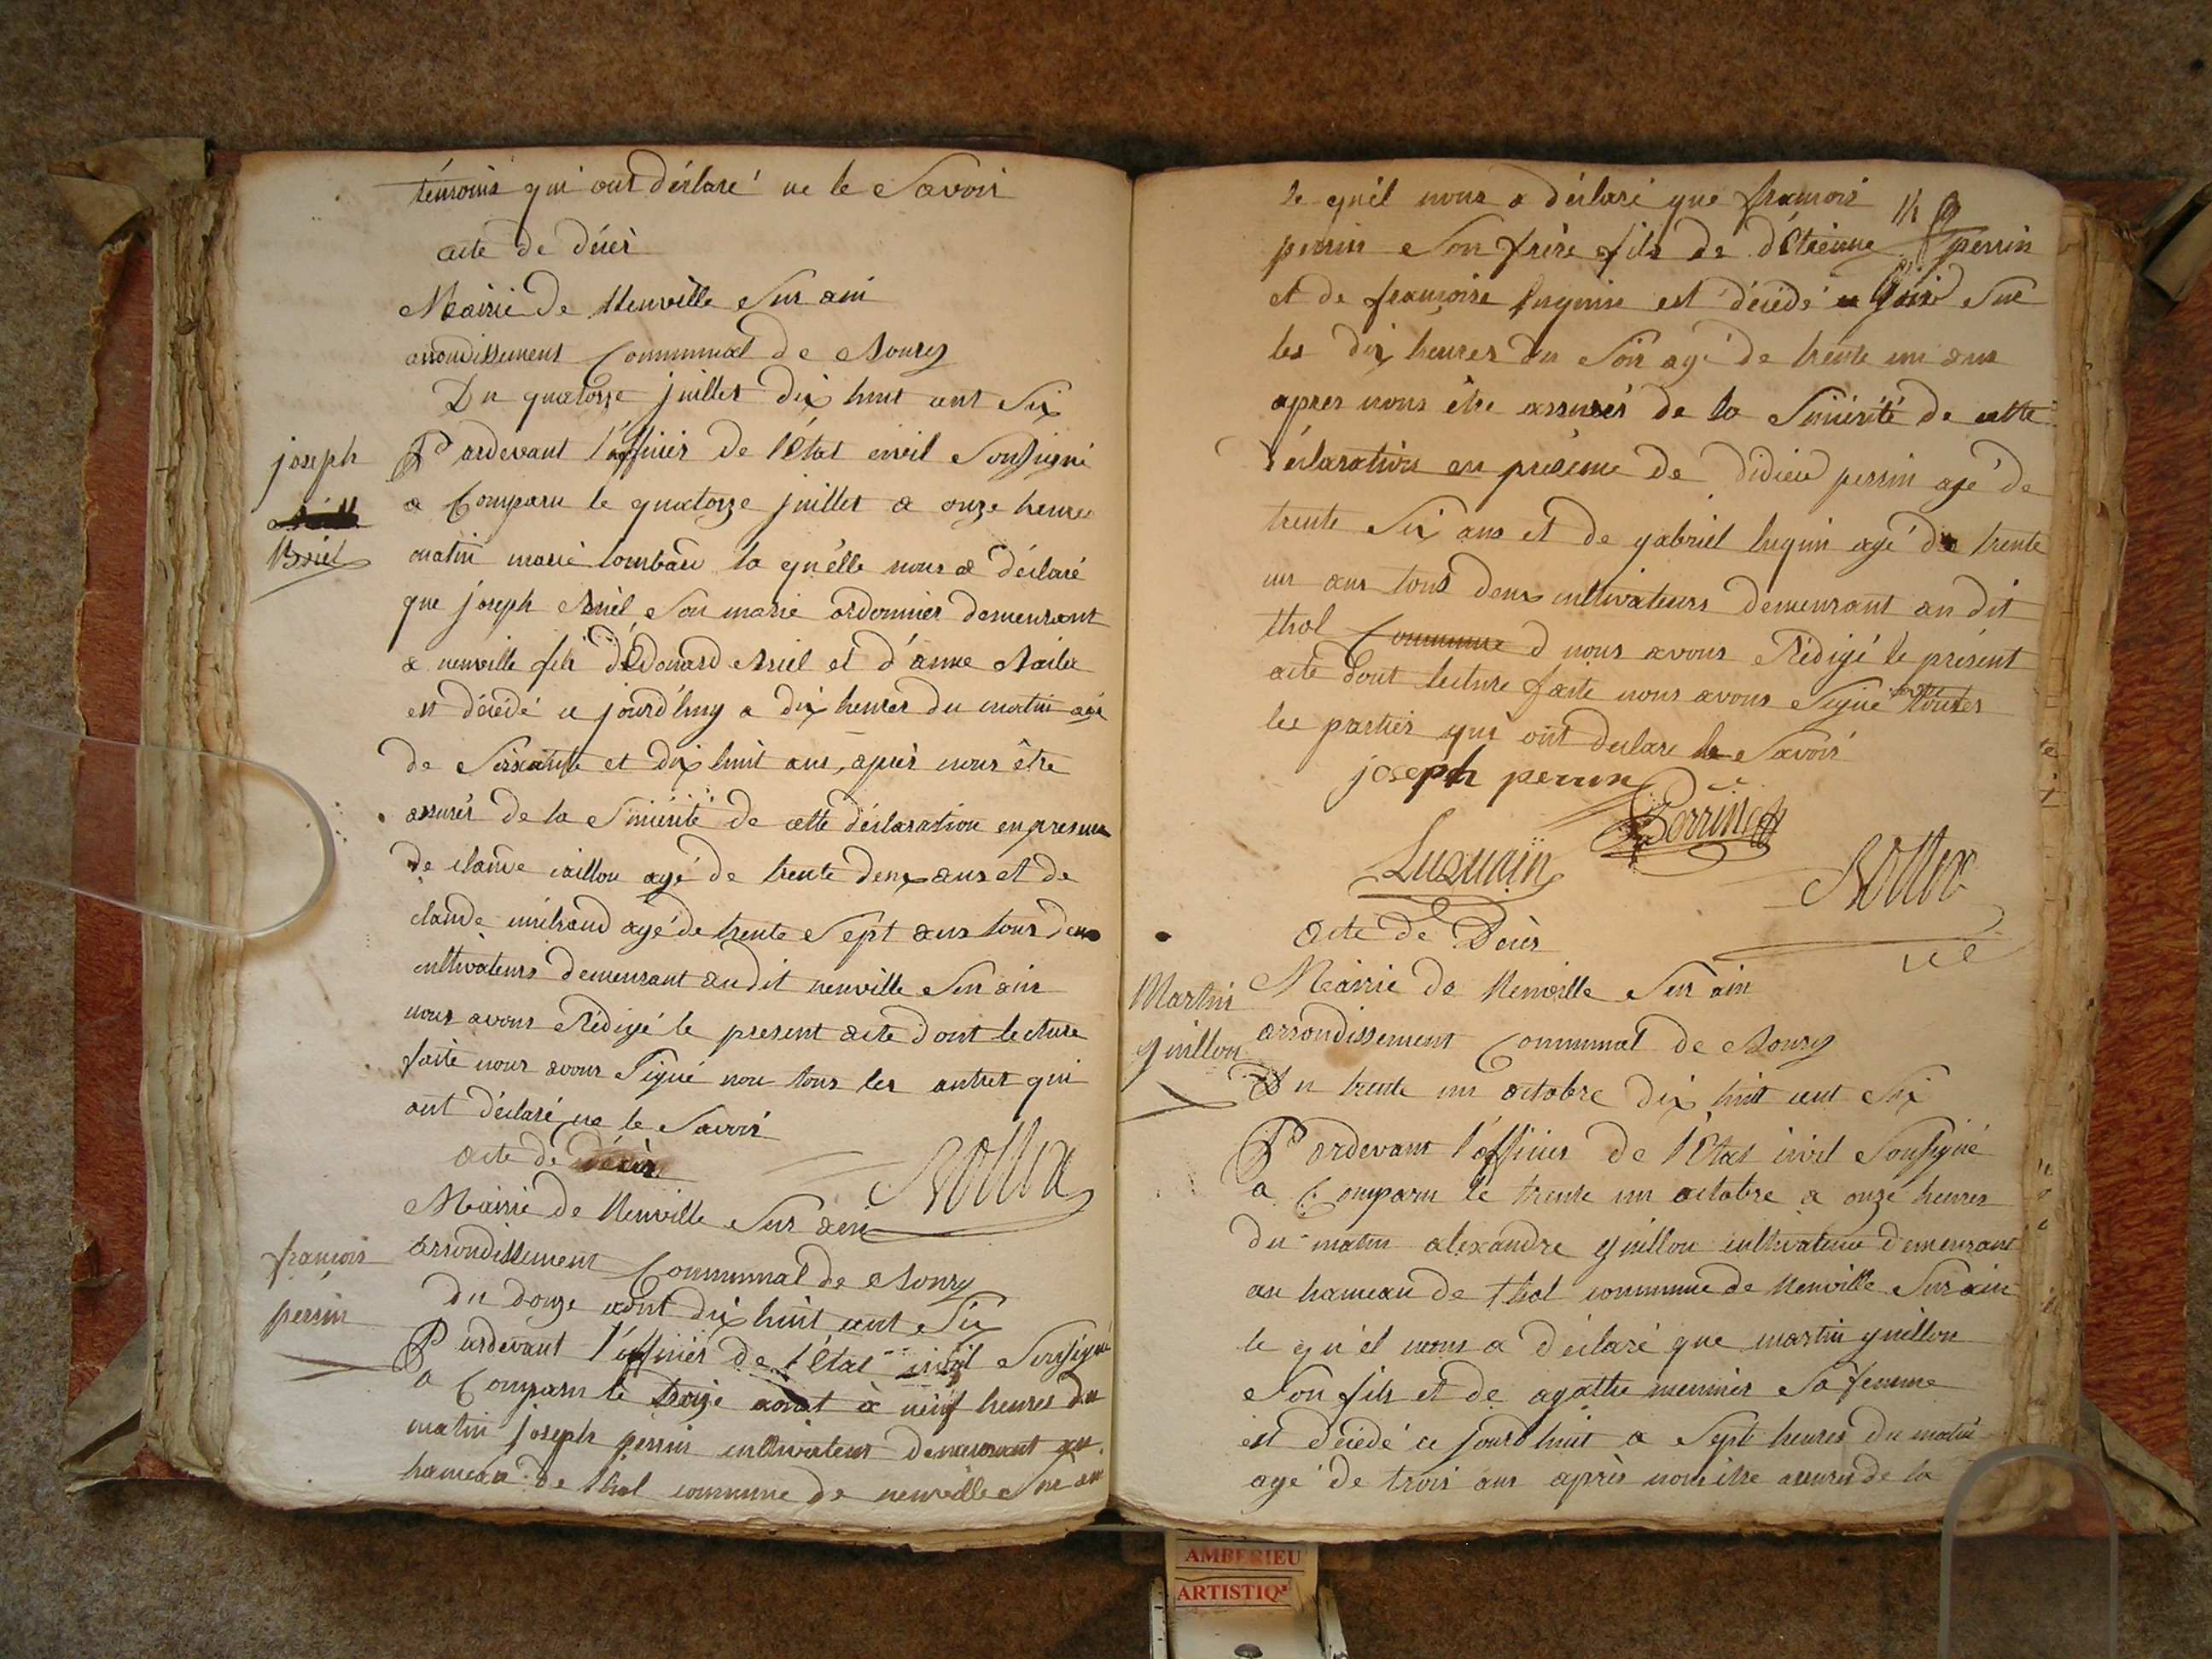 témoins qui ont déclaré ne le Savoir
acte de décès
Mairie de Neuville Sur ain
arrondissement Communal de Bourg
Du quatorze juillet dix huit cent Six
joseph
Briel
Pardevant l'officier de l'Etat civil Soussigné
a Comparu le quatorze juillet a onze heures
matin marie lombard la quelle nous a déclaré
que joseph Briel Son marie cordonnier demeurant
a neuville fils d'Edouard Briel et d'anne
est décédé ce jourd'huy a dix heures du matin agé
de Soixante et dix huit ans, après nous être
assurés de la Sincérité de cette déclaration en presence
de claude caillou agé de trente deux ans et de
claude michaud agé de trente Sept ans tous deux
cultivateurs demeurant audit neuville Sur ain
nous avons Rédigé le present acte dont lecture
faite nous avons Signé non tous les autres qui
ont déclaré ne le Savoir
acte de décès
Mairie de Neuville Sur ain
françois
perrin
arrondissement Communal de Bourg
du douze aout dix huit cent Six
Pardevant l'officier de l'état civil Soussigné
a Comparu le treize aout à neuf heures du
matin joseph perrin cultivateur demeurant au
hameau de thol commune de neuville Sur ain
le quel nous a déclaré que françois
perrin Son frère fils de d'Etienne perrin
et de françoise luquin est décédé hier Sur
les dix heures du Soir agé de trente un ans
apres nous être assurés de la Sincérité de cette
déclaration en présence de didier perrin agé de
trente Six ans et de gabriel luquin agé de trente
un ans tous deux cultivateurs demeurant au dit
thol Commune d nous avons Rédigé le présent
acte dont lecture faite nous avons Signé toutes
les parties qui ont declare le Savoir
joseph perrin
Perrin
Luquain
acte de Décès
Martin
guillon
Mairie de Neuville Sur ain
arrondissement Communal de Bourg
Du trente un octobre dix huit cent Six
Pardevant l'officier de l'Etat civil Soussigné
a Comparu le trente un octobre a onze heures
du matin alexandre guillon cultivateur demeurant
au hameau de thol commune de Neuville Sur ain
le quel nous a déclaré que martin guillon
Son fils et de agathe meunier Sa femme
est décédé ce jourd'huit a Sept heures du matin
agé de trois ans après nous être assurés de la
AMBERIEU
ARTISTIQ